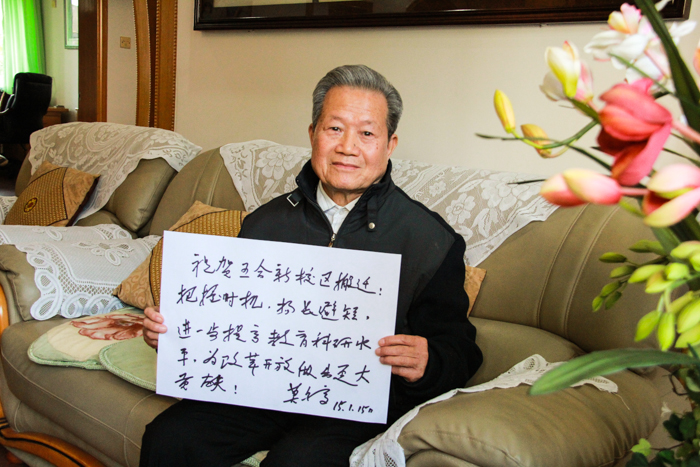 祝贺五会新校区搬迁:
把握时机,扬长避短,
进一步提高教育科研水
平,为改革开放做出更大
贡献!
15.1.15日